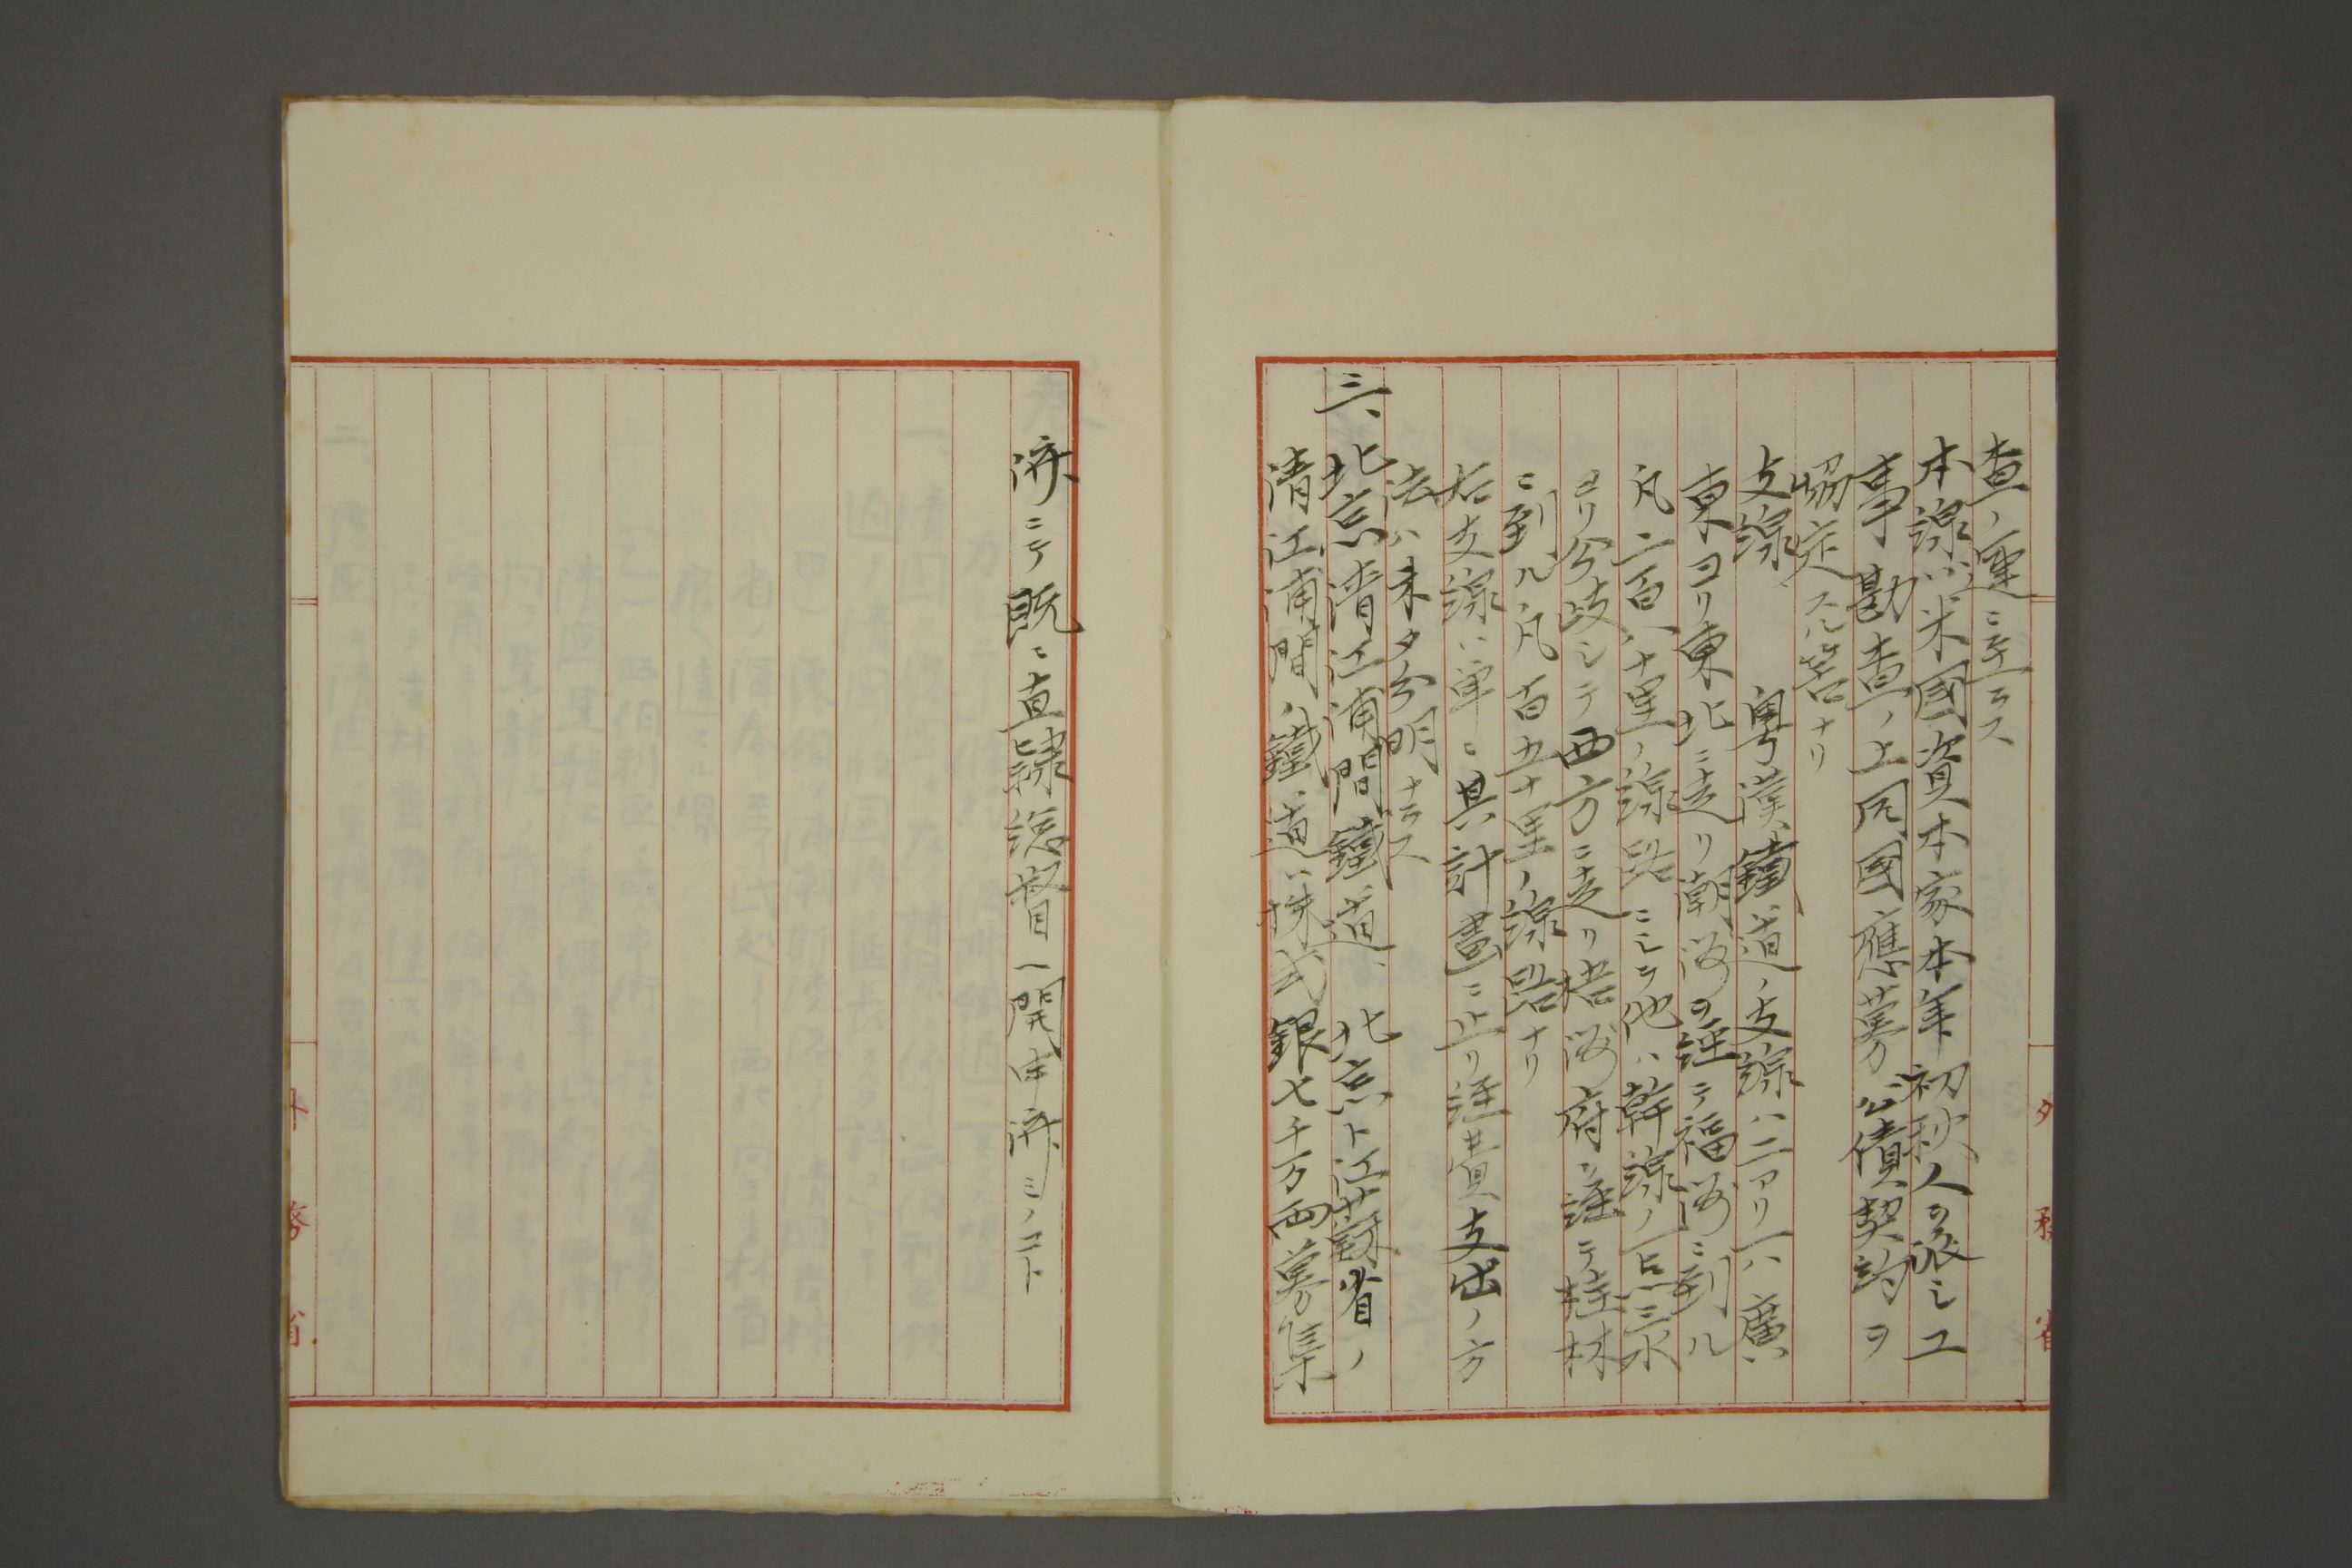 査ノ運ニ至ラス
本線ハ米國資本家本年初秋人ヲ派シ工
事勘査ノ上同國應募公債契約ヲ
協定スル筈ナリ
支線　粤漢鐵道ノ支線ハ二アリ一ハ廣
東ヨリ東北ニ走リ潮州ヲ経テ福州ニ到ル
凡二百八十里ノ線路ニシテ他ハ幹線ノ一点三水
ヨリ分岐シテ西方ニ走リ梧州府ヲ経テ桂林
ニ到ル凡百五十里ノ線路ナリ
右支線ハ単ニ其計畫ニ止リ経費支出ノ方
法ハ未タ分明ナラス
三、北京清江浦間鐵道、北京ト江蘇省ノ
清江浦間ノ鐵道ハ株式銀七千万両募集
済ニテ既ニ直隷総督ヘ開申済ミノコト
外務省
外務省